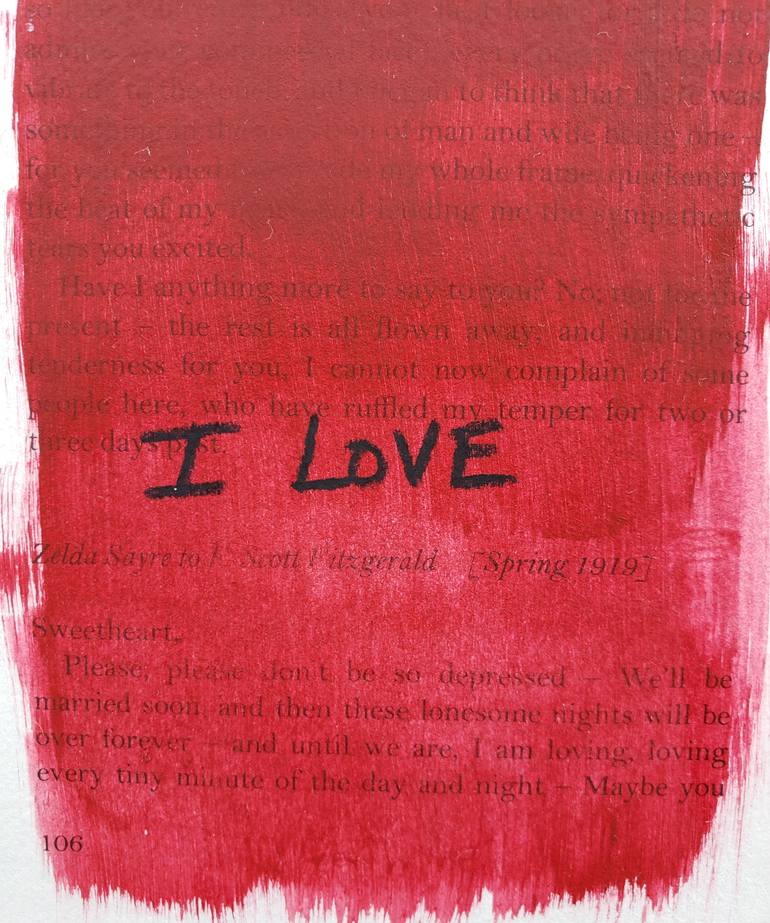 admire
to the touch, and to think that there was
something in the of man and wife being one –
for you seemed my whole frame, quickening
the beat of my me the sympathetic
tears you excited.
Have I anything more to say to you? No; not for the
present – the rest is all flown away; and
tenderness for you, I cannot now complain of some
people here, who have ruffled my temper for two or
three days past.
I LOVE
Zelda Sayre to F. Scott Fitzgerald [Spring 1919]
Sweetheart,
Please, please don't be so depressed – We'll be
married soon, and then these lonesome nights will be
over forever – and until we are, I am loving, loving
every tiny minute of the day and night – Maybe you
106